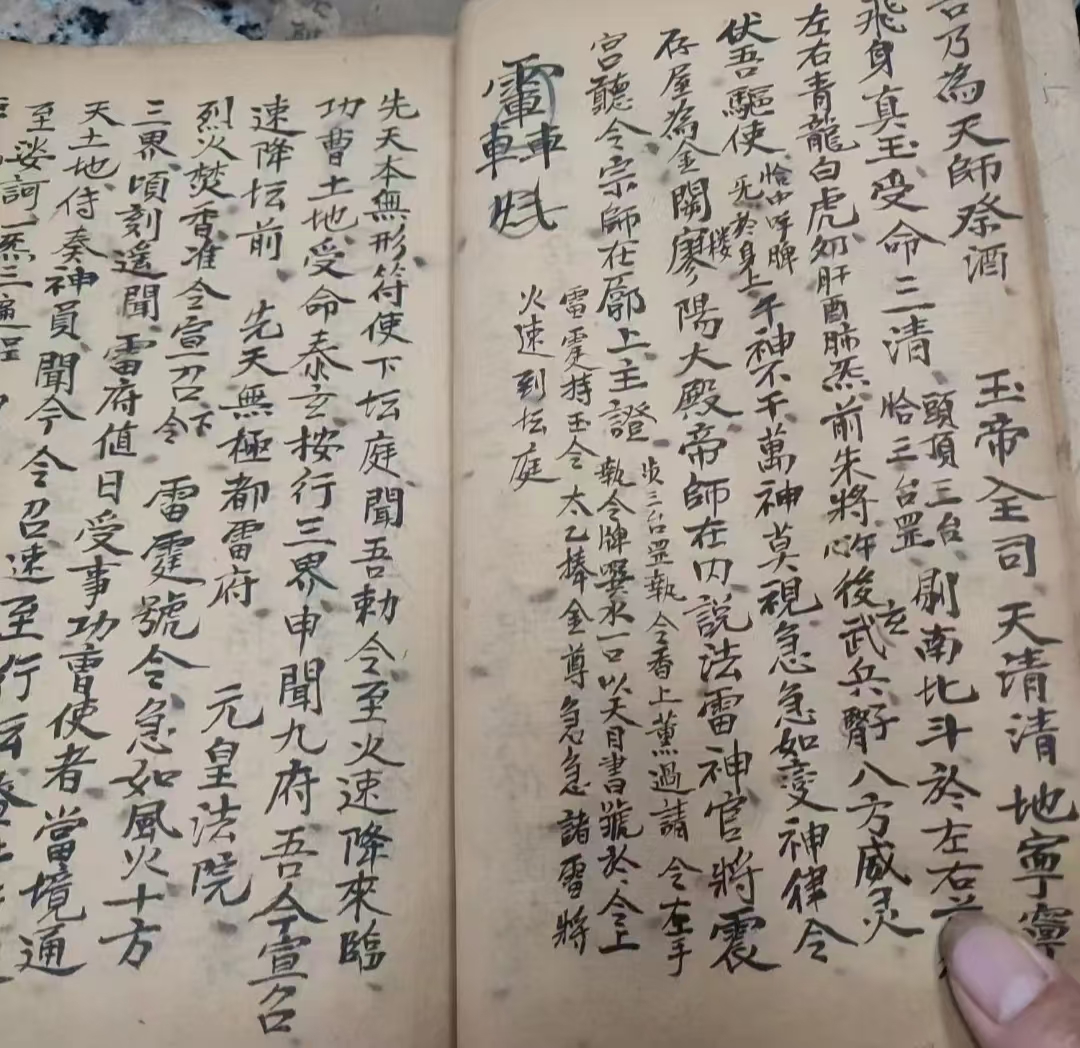 吾乃為天師祭酒 玉帝全司 天清清 地寧寧
飛身真王受命三清 頭頂三台 恰三台罡 剔南北斗於左右
左右青龍白虎夘肝酉肺炁前朱將心午後武兵腎子八方威灵
伏吾驅使 恰中呼脾 旡於身上 千神不干萬神莫視急急如變神律令
存屋為金闕寥陽大殿帝師在内說法雷神官將震
宫聽令宗師在廓上主證 步三台罡執令香上薰過請令左手
執令牌噀水一口以天目書號於令上
雷霆持玉令太乙棒金尊急急諸雷將
火速到坛庭
先天本無形符使下坛庭聞吾勅令至火速降來臨
功曹土地受命泰玄按行三界申聞九府吾今宣召
速降坛前 先天無極都雷府 元皇法院
烈火焚香准令宣召下令 雷霆號令急如風火十方
三界頃刻遥聞雷府值日受事功曹使者當境通
天土地侍奏神員聞今令召速至行坛
至娑訶一炁三遍